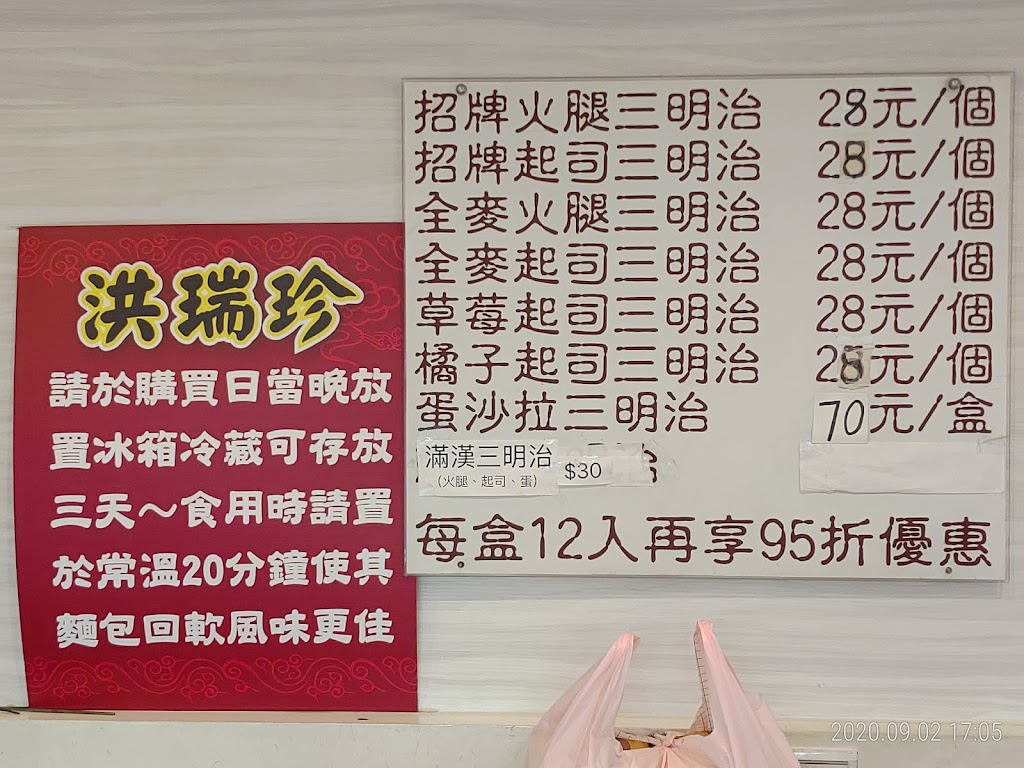 洪瑞珍
請於購買日當晚放
置冰箱冷藏可存放
三天～食用時請置
於常溫20分鐘使其
麵包回軟風味更佳
招牌火腿三明治 28元/個
招牌起司三明治 28元/個
全麥火腿三明治 28元/個
全麥起司三明治 28元/個
草莓起司三明治 28元/個
橘子起司三明治 28元/個
蛋沙拉三明治 70元/盒
滿漢三明治 $30
(火腿、起司、蛋)
每盒12入再享95折優惠
2020.09.02 17:05